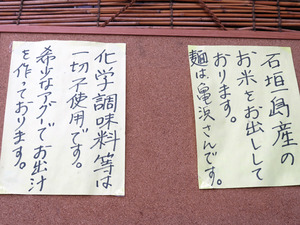 石垣島産の
お米をお出しして
おります。
麺は亀浜さんです。
化学調味料等は
一切不使用です。
希少なアグーでお出汁
を作っております。